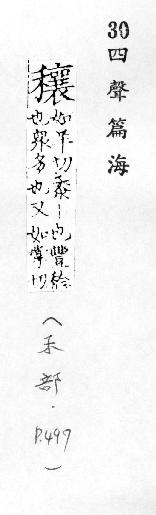 30四聲篇海
穰
如羊切黍丨也豐給
也衆多也又如掌切
(禾部·P.497)